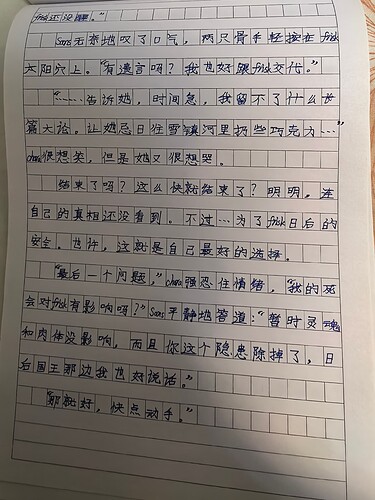 frisk还没醒。”
Sans无奈地叹了口气，两只骨手轻按在frisk
太阳穴上。“有遗言吗？我也好跟frisk交代。”
“……告诉她，时间急，我留不了什么长
篇大论。让她忌日往雪镇河里扔些巧克力…”
chara很想笑，但是她又很想哭。
结束了吗？这么快就结束了？明明，连
自己的真相还没看到。不过…为了frisk日后的
安全。也许，这就是自己最好的选择。
“最后一个问题，”chara强忍住情绪，“我的死
会对frisk有影响吗？”Sans平静地答道：“暂时灵魂
和肉体没影响，而且你这个隐患除掉了，日
后国王那边我也好说话。”
“那就好，快点动手。”